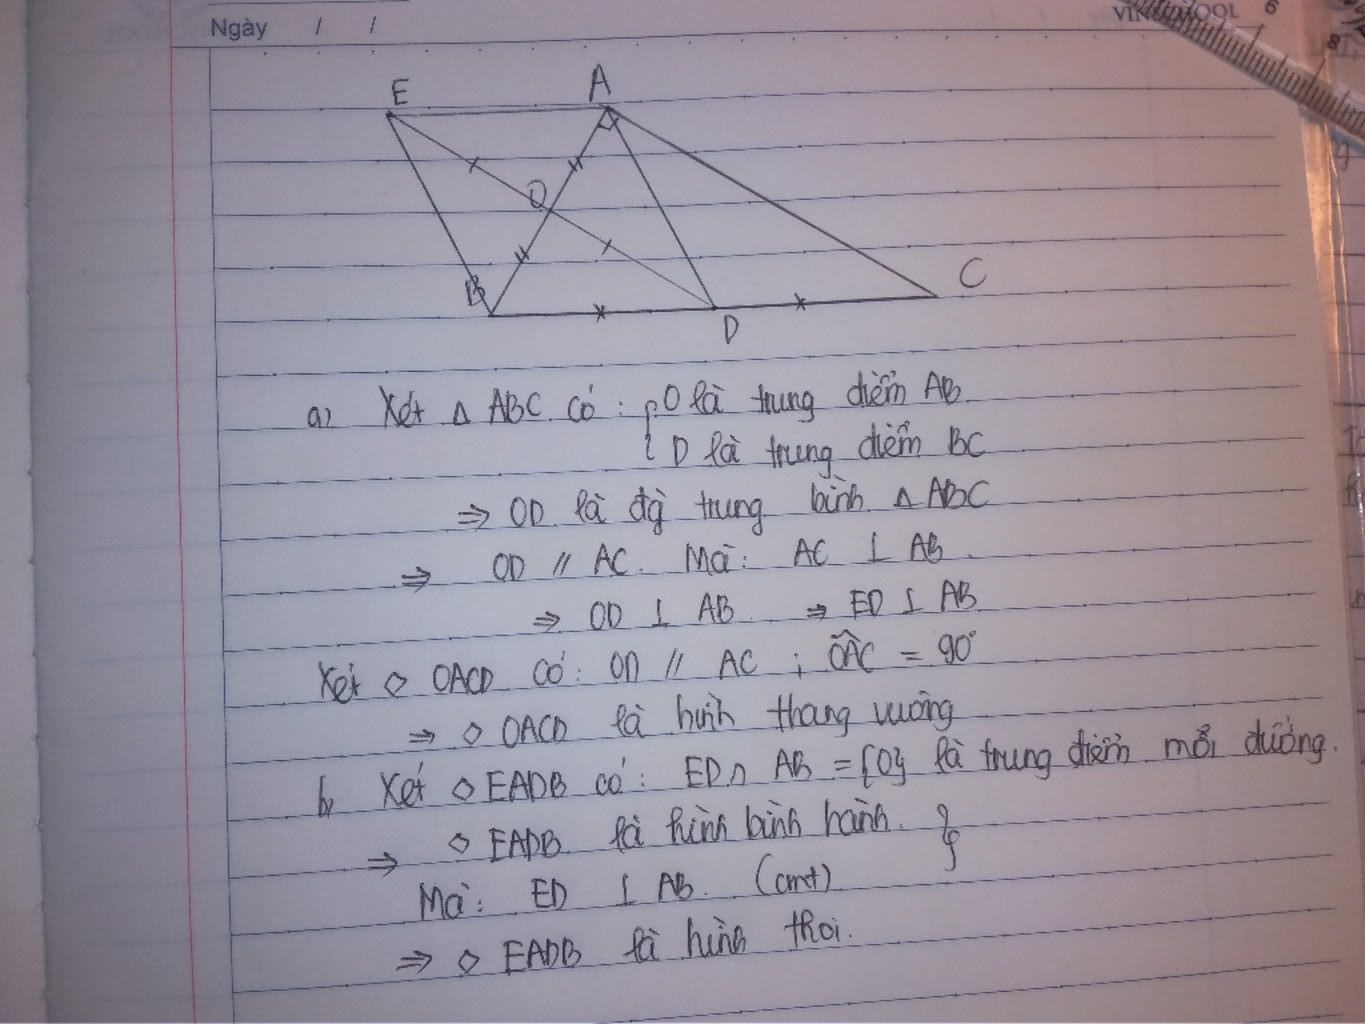 Ngày / /
VINSCHOOL
6
8
E A
O
B
D
C
a, Xét △ ABC có : { O là trung điểm AB
D là trung điểm BC
⇒ OD là đg trung bình △ ABC
⇒ OD // AC. Mà: AC ⊥ AB
⇒ OD ⊥ AB ⇒ ED ⊥ AB
Xét ◇ OACD có: OD // AC ; OÂC = 90°
⇒ ◇ OACD là hình thang vuông
b, Xét ◇ EADB có: ED ∩ AB = {O} là trung điểm mỗi đường.
⇒ ◇ EADB là hình bình hành. }
Mà: ED ⊥ AB. (cmt)
⇒ ◇ EADB là hình thoi.